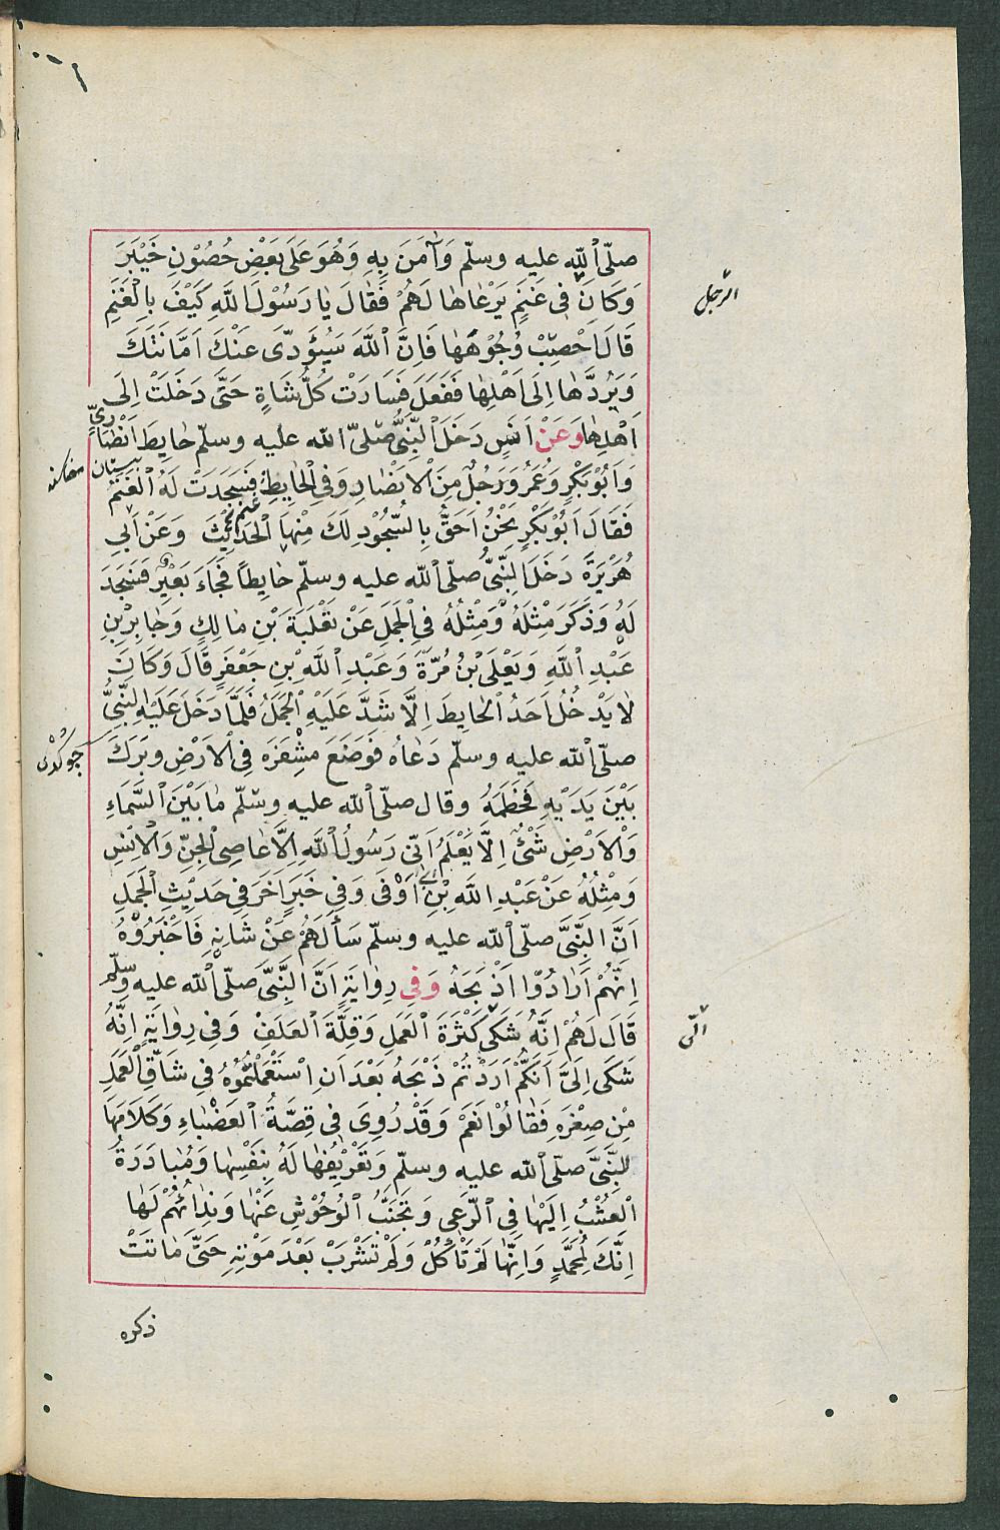 صلّى ٱللّه عليه وسلّم وَآمَنَ بِهِ وَهُوَ عَلَى بَعْضِ حُصُوْنِ خَيْبَرَ
وَكَانَ فِى غَنَمٍ يَرْعَاهَا لَهُمْ فَقَالَ يَا رَسُوْلَ اللّهِ كَيْفَ بِالْغَنَمِ
الرجل
قَالَ اَحْصِبْ وُجُوْهَهَا فَاِنَّ ٱللّهَ سَيُؤَدِّى عَنْكَ اَمَانَتَكَ
وَيَرُدَّهَا اِلَى اَهْلِهَا فَفَعَلَ فَسَارَتْ كُلُّ شَاةٍ حَتَّى دَخَلَتْ اِلَى
اَهْلِهَا وَعَنْ اَنَسٍ دَخَلَ ٱلنَّبِىُّ صلّى ٱللّه عليه وسلّم حَايِطَ اَنْصَارِىٍّ
بستان
وَاَبُوْبَكْرٍ وَعُمَرُ وَرَجُلٌ مِنَ ٱلْاَنْصَارِ وَفِى ٱلْحَايِطِ غَنَمٌ فَسَجَدَتْ لَهُ ٱلْغَنَمُ
فَقَالَ اَبُوْبَكْرٍ نَحْنُ اَحَقُّ بِالسُّجُوْدِ لَكَ مِنْهَا ٱلْحَدِيْثَ وَعَنْ اَبِى
هُرَيْرَةَ دَخَلَ ٱلنَّبِىُّ صلّى ٱللّه عليه وسلّم حَايِطًا فَجَاءَ بَعِيْرٌ فَسَجَدَ
لَهُ وَذَكَرَ مِثْلَهُ وَمِثْلُهُ فِى ٱلْجَمَلِ عَنْ ثَعْلَبَةَ بْنِ مَالِكٍ وَجَابِرِبْنِ
عَبْدِ ٱللّهِ وَيَعْلَى بْنُ مُرَّةَ وَعَبْدِ ٱللّهِ بْنِ جَعْفَرٍ قَالَ وَكَانَ
لَا يَدْخُلُ اَحَدٌ ٱلْحَايِطَ اِلَّا شَدَّ عَلَيْهِ ٱلْجَمَلُ فَلَمَّا دَخَلَ عَلَيْهِ ٱلنَّبِىُّ
صلّى ٱللّه عليه وسلّم دَعَاهُ فَوَضَعَ مِشْفَرَهُ فِى ٱلْاَرْضِ وَبَرَكَ
چوكدى
بَيْنَ يَدَيْهِ فَخَطَمَهُ وقال صلّى ٱللّه عليه وسلّم مَا بَيْنَ ٱلسَّمَاءِ
وَٱلْاَرْضِ شَىْءٌ اِلَّا يَعْلَمُ اَنِّى رَسُولُ ٱللّهِ اِلَّا عَاصِى ٱلْجِنِّ وَٱلْاِنْسِ
وَمِثْلُهُ عَنْ عَبْدِ اللّهِ بْنِ اَبِى اَوْفَى وَفِى خَبَرٍ اٰخَرَ فِى حَدِيْثِ ٱلْجَمَلِ
اَنَّ النَّبِىَّ صلّى ٱللّه عليه وسلّم سَأَلَهُمْ عَنْ شَانِهِ فَاَخْبَرُوْهُ
اِنَّهُمْ اَرَادُوْا ذَبْحَهُ وَفِى رِوَايَةٍ اَنَّ النَّبِىَّ صلّى ٱللّه عليه وسلّم
قَالَ لَهُمْ اِنَّهُ شَكَى كَثْرَةَ ٱلْعَمَلِ وَقِلَّةَ ٱلْعَلَفِ وَفِى رِوَايَةٍ اِنَّهُ
الّى
شَكَى اِلَىَّ اَنَّكُمْ اَرَدْتُمْ ذَبْحَهُ بَعْدَ اَنِ اسْتَعْمَلْتُمُوْهُ فِى شَاقِّ ٱلْعَمَلِ
مِنْ صِغَرِهِ فَقَالُوْا نَعَمْ وَقَدْ رُوِىَ فِى قِصَّةِ ٱلْعَضْبَاءِ وَكَلَامَهَا
لِلنَّبِىِّ صلّى ٱللّه عليه وسلّم وَتَعْرِيْفِهَا لَهُ بِنَفْسِهَا وَمُبَادَرَةُ
الْعُشْبِ اِلَيْهَا فِى ٱلرَّعِى وَتَجَنُّبُ ٱلْوُحُوْشِ عَنْهَا وَنِدَائُهُمْ لَهَا
اِنَّكَ لِمُحَمَّدٍ وَاِنَّهَا لَمْ تَأْكُلْ وَلَمْ تَشْرَبْ بَعْدَ مَوْتِهِ حَتَّى مَاتَتْ
ذكره